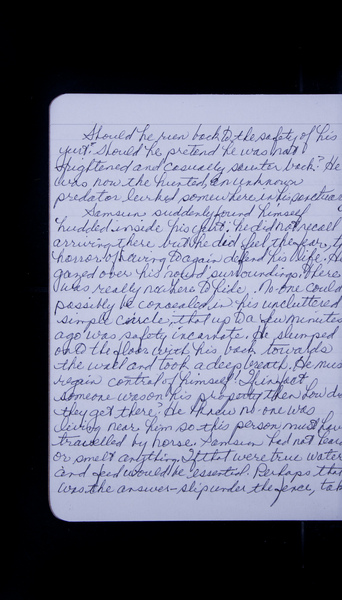 Should he run back to the safety of his
yurt? Should he pretend he was not
frightened and casually saunter back? He
was now the hunted, an unknown
predator lurked somewhere in his sanctuar
Samsun suddenly found himself
huddled inside his yurt. He did not recall
arriving there but he did feel the fear, t
horror of having to again defend his life. He
gazed over his round surroundings. There
was really nowhere to hide. No-one could
possibly be concealed in his uncluttered
simple circle, that up to a few minutes
ago was safety incarnate. He slumped
onto the floor with his back towards
the wall and took a deep breath. He mus
regain control of himself. If in fact
someone was on his property then how di
they get there? He knew no-one was
living near him so this person must have
travelled by horse. Samsun had not hear
or smelt anything. If that were true water
and feed would be essential. Perhaps tha
was the answer - slip under the fence, tak